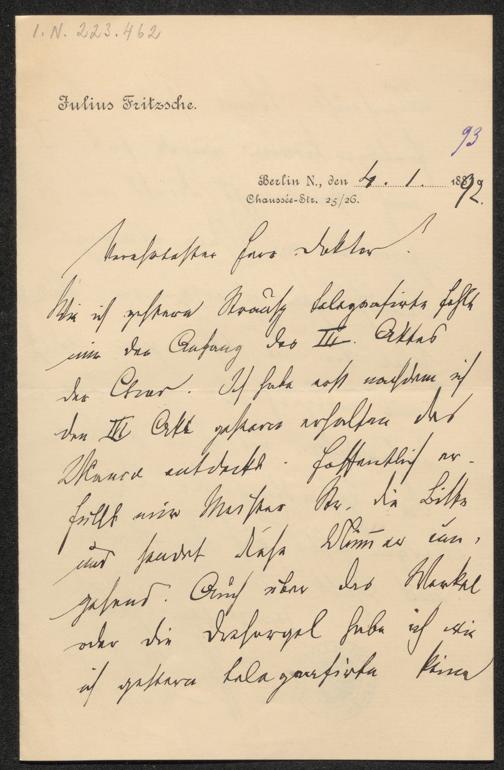 I.N. 223.462
Julius Fritzsche.
93
Berlin N., den 4. 1. 1892.
Chaussée-Str. 25/26.
Verehrtester Herr Doktor!
Wie ich gestern Strauß telegrafirte fehlt
mir der Anfang des III. Aktes
der Chor. Ich habe erst nachdem ich
den III Akt gestern erhalten das
entdeckt. Hoffentlich er-
füllt mir Meister Str. die Bitte
und sendet diese Nummer um-
gehend. Auch über das Werkel
oder die Drehorgel habe ich wie
ich gestern telegrafirte keine